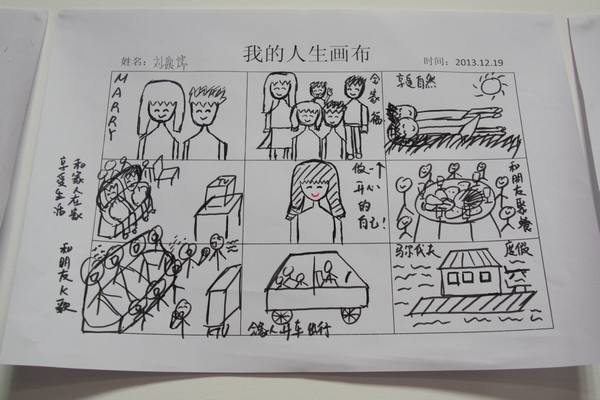 我的人生画布
姓名：
时间：2013.12.19
MARRY
全家福
享受自然
和家人在家
享受生活
做一个
开心
的
自己！
和朋友聚餐
和朋友K歌
KTV
全家人开车旅行
马尔代夫 度假